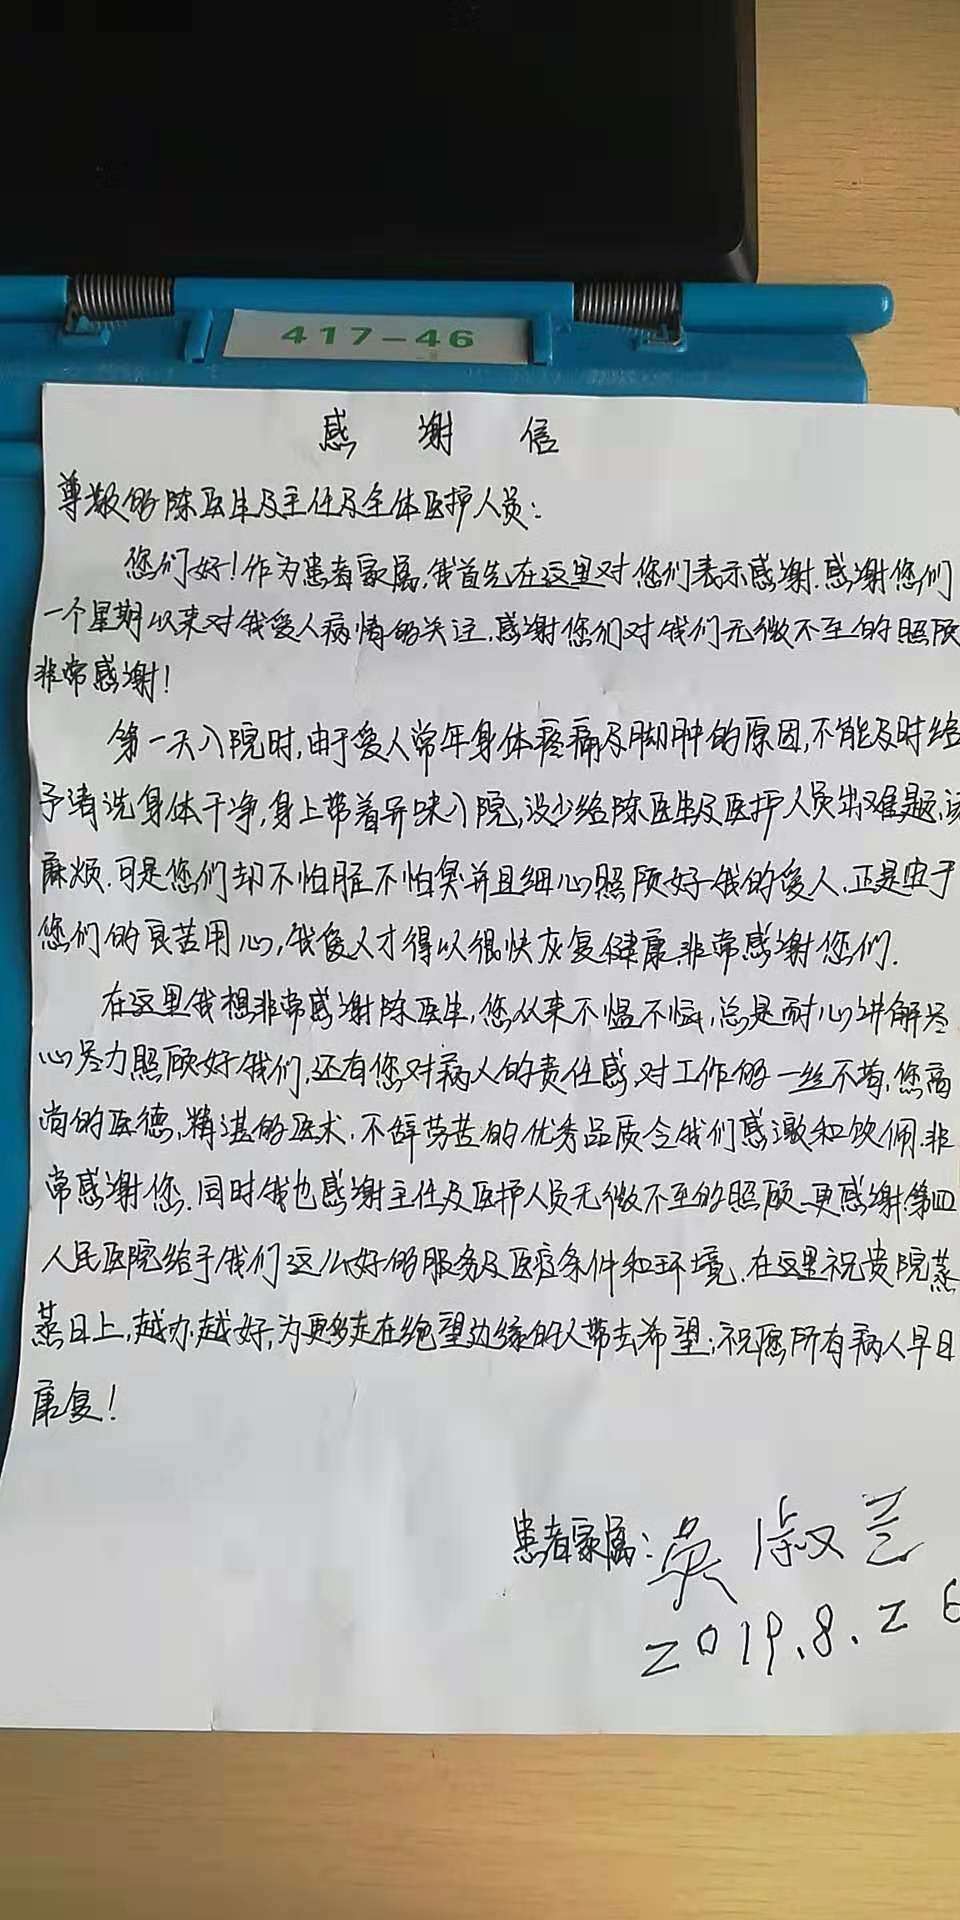 417-46
感谢信
尊敬的陈医生及主任及全体医护人员:
您们好!作为患者家属,我首先在这里对您们表示感谢.感谢您们
一个星期以来对我爱人病情的关注.感谢您们对我们无微不至的照顾
非常感谢!
第一天入院时,由于爱人常年身体疼痛及脚肿的原因,不能及时给
予清洗身体干净,身上带着异味入院,没少给陈医生及医护人员出难题,添
麻烦.可是您们却不怕脏不怕臭并且细心照顾好我的爱人.正是由于
您们的良苦用心,我爱人才得以很快灰复健康.非常感谢您们.
在这里我想非常感谢陈医生,您从来不愠不恼,总是耐心讲解尽
心尽力照顾好我们,还有您对病人的责任感,对工作的一丝不苟,您高
尚的医德,精湛的医术,不辞劳苦的优秀品质令我们感激和钦佩.非
常感谢您.同时我也感谢主任及医护人员无微不至的照顾.更感谢第四
人民医院给于我们这么好的服务及医疗条件和环境.在这里祝贵院蒸
蒸日上,越办越好,为更多走在绝望边缘的人带去希望;祝愿所有病人早日
康复!
患者家属:吴淑兰
2019.8.26